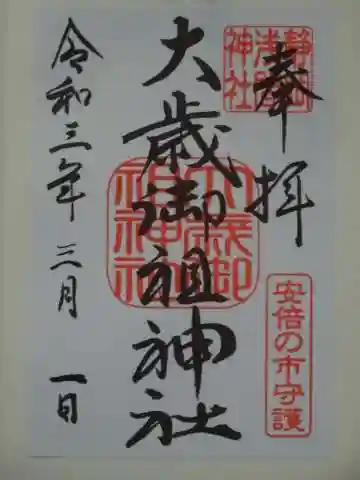 奉拝
静岡浅間神社
安倍の市守護
大歳御祖神社
大歳御祖神社
令和三年三月一日